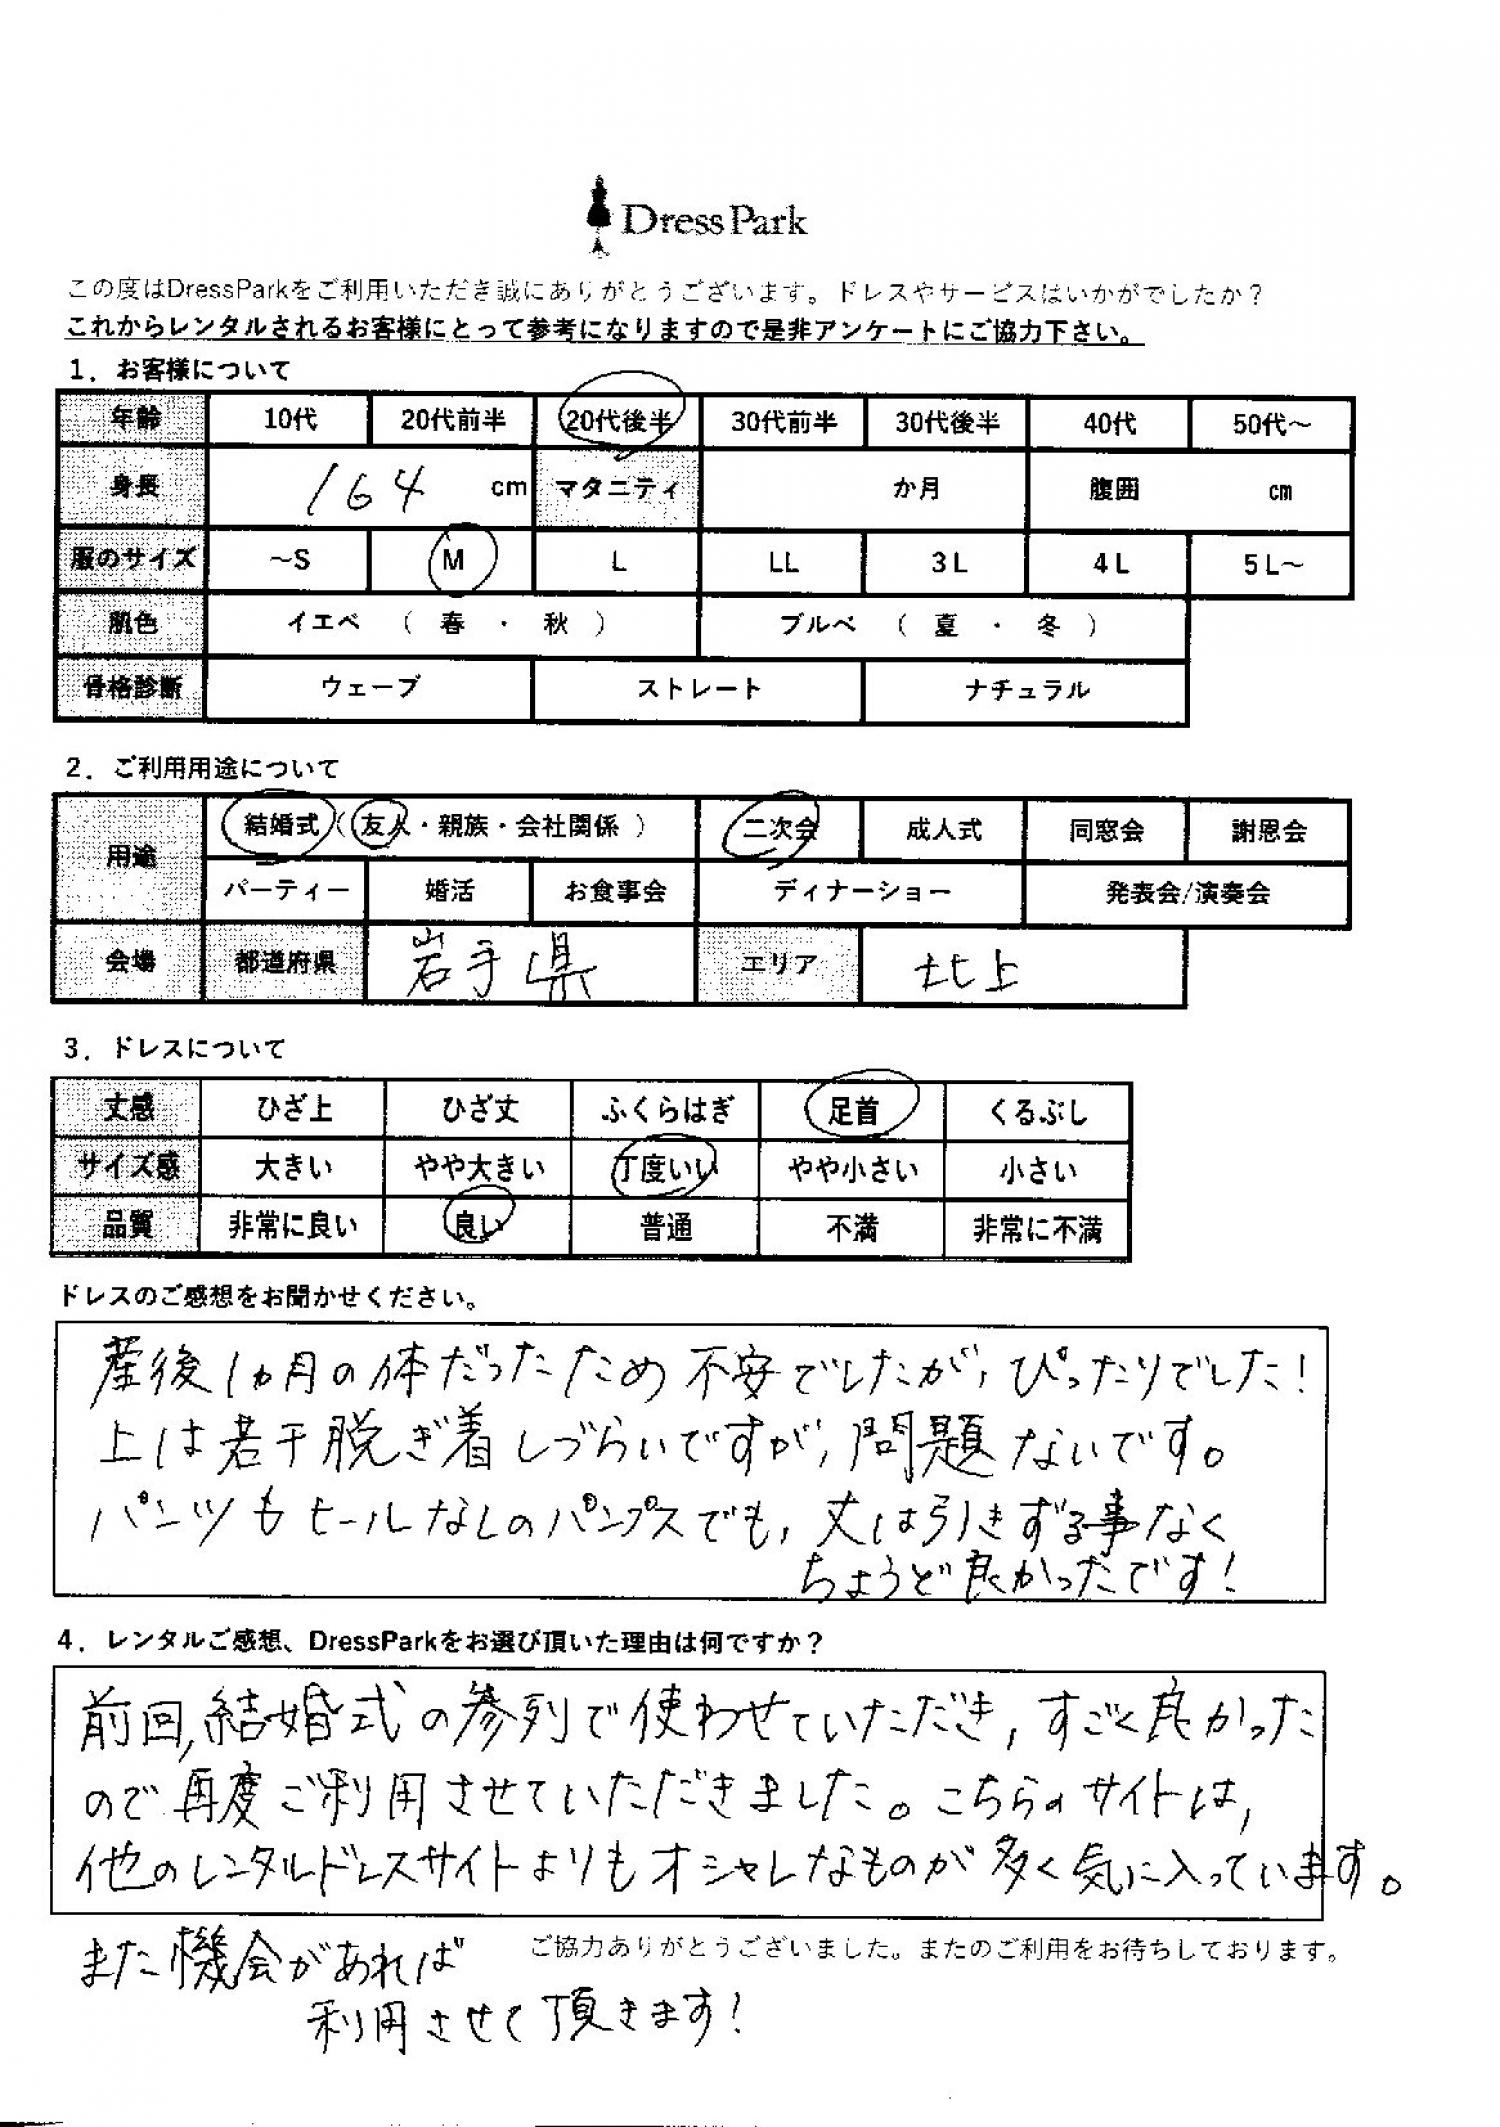 DressPark
この度はDressParkをご利用いただき誠にありがとうございます。ドレスやサービスはいかがでしたか？
これからレンタルされるお客様にとって参考になりますので是非アンケートにご協力下さい。
1．お客様について
年齢 10代 20代前半 20代後半 30代前半 30代後半 40代 50代～
身長 164 cm マタニティ か月 腹囲 cm
服のサイズ ～S M L LL 3L 4L 5L～
肌色 イエベ （ 春 ・ 秋 ） ブルベ （ 夏 ・ 冬 ）
骨格診断 ウェーブ ストレート ナチュラル
2．ご利用用途について
用途 結婚式（友人・親族・会社関係 ） 二次会 成人式 同窓会 謝恩会
パーティー 婚活 お食事会 ディナーショー 発表会/演奏会
会場 都道府県 岩手県 エリア 北上
3．ドレスについて
丈感 ひざ上 ひざ丈 ふくらはぎ 足首 くるぶし
サイズ感 大きい やや大きい 丁度いい やや小さい 小さい
品質 非常に良い 良い 普通 不満 非常に不満
ドレスのご感想をお聞かせください。
産後1ヵ月の体だったため不安でしたが、ぴったりでした！
上は若干脱ぎ着しづらいですが、問題ないです。
パンツもヒールなしのパンプスでも、丈は引きずる事なく
ちょうど良かったです！
4．レンタルご感想、DressParkをお選び頂いた理由は何ですか？
前回、結婚式の参列で使わせていただき、すごく良かった
ので再度ご利用させていただきました。こちらのサイトは、
他のレンタルドレスサイトよりもオシャレなものが多く気に入っています。
ご協力ありがとうございました。またのご利用をお待ちしております。
また機会があれば
利用させて頂きます！